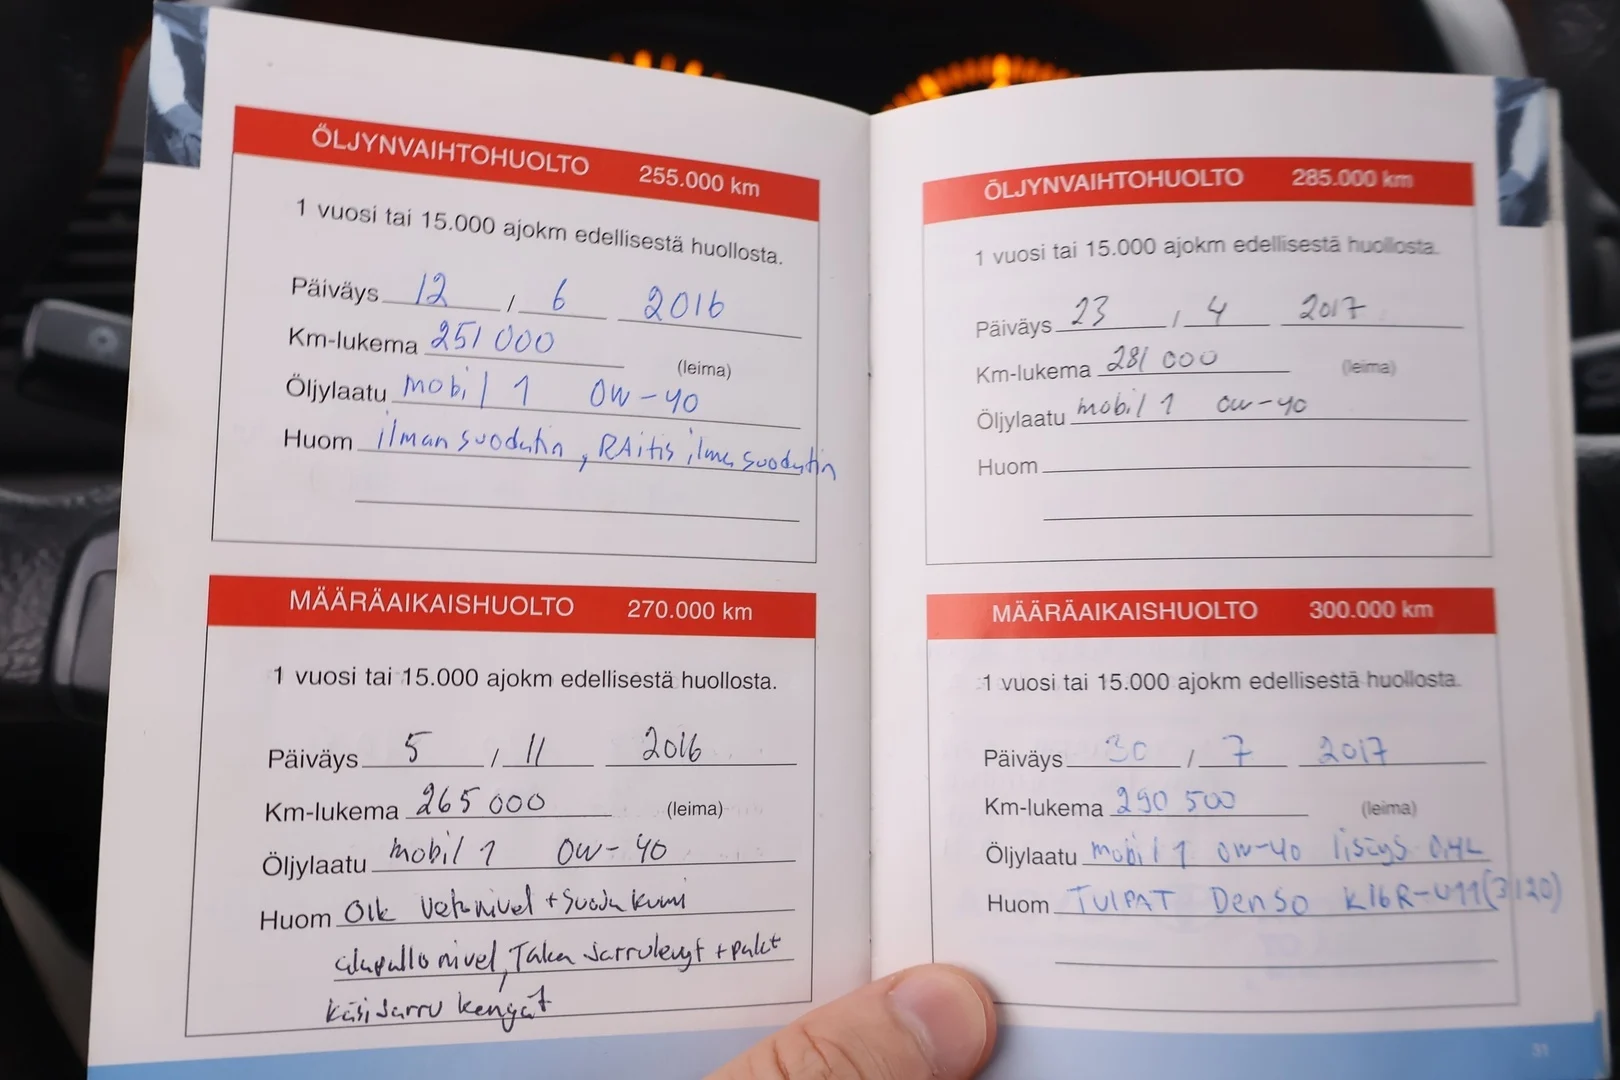 ÖLJYNVAIHTOHUOLTO 255.000 km
1 vuosi tai 15.000 ajokm edellisestä huollosta.
Päiväys 12 / 6 2016
Km-lukema 251 000 (leima)
Öljylaatu mobil 1 0W-40
Huom ilman suodatin, RAitis ilma suodatin
MÄÄRÄAIKAISHUOLTO 270.000 km
1 vuosi tai 15.000 ajokm edellisestä huollosta.
Päiväys 5 / 11 2016
Km-lukema 265 000 (leima)
Öljylaatu mobil 1 0W-40
Huom Oik vetonivel + suoja kumi
alapallo nivel, Taka Jarrulevyt + palat
käsiJarru kengät
ÖLJYNVAIHTOHUOLTO 285.000 km
1 vuosi tai 15.000 ajokm edellisestä huollosta.
Päiväys 23 / 4 2017
Km-lukema 281 000 (leima)
Öljylaatu mobil 1 0W-40
Huom
MÄÄRÄAIKAISHUOLTO 300.000 km
1 vuosi tai 15.000 ajokm edellisestä huollosta.
Päiväys 30 / 7 2017
Km-lukema 290 500 (leima)
Öljylaatu mobil 1 0W-40 lisäys 0,4L
Huom TULPAT Denso K16R-U11(3120)
31